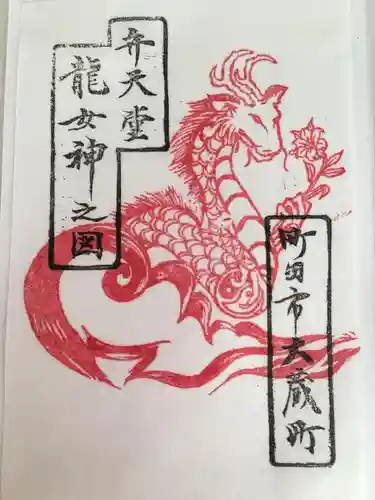 弁天堂
龍女神之図
町田市大蔵町